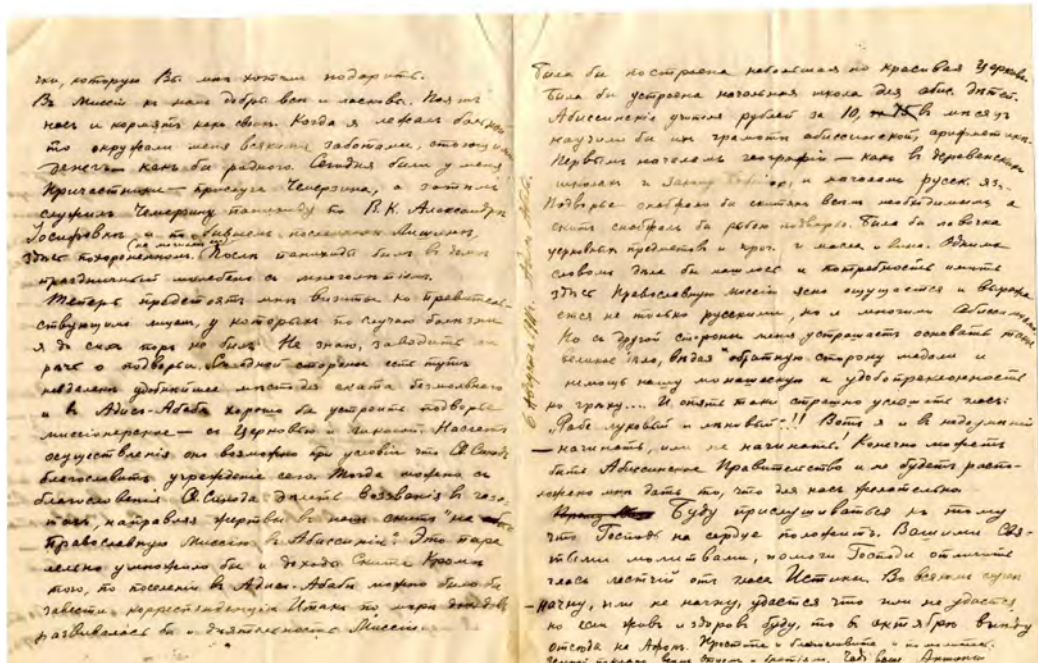 чки, которую Вы мнѣ хотѣли подарить.
Въ Миссіи ко мнѣ добры всѣ и ласковы. Поятъ
насъ и кормятъ какъ своихъ. Когда я лежалъ больной,
то окружали меня всякими заботами,
денегъ — какъ бы родного. Сегодня были у меня
Причастники — прислуга Чемерзина, а затѣмъ
служилъ Чемерзину панихиду по В.К. Александрѣ
Іосифовнѣ и по бывшемъ посланникѣ Лишинѣ,
здѣсь похороненномъ. Послѣ панихиды былъ въ
праздничный молебенъ съ многолѣтіемъ.
Теперь предстоятъ мнѣ визиты ко правитель-
ствующимъ лицамъ, у которыхъ по случаю болѣзни
я до сихъ поръ не былъ. Не знаю, заводить ли
рѣчь о подворьи. Съ одной стороны есть тутъ
недалеко удобнѣйшее мѣсто для скита безмолвнаго
и въ Адисъ-Абабѣ хорошо бы устроить подворье
миссіонерское — съ Церковью и школой. Насчетъ
осуществленія оно возможно при условіи что Св. Синодъ
благословитъ учрежденіе сего. Тогда можно съ
благословенія Св. Синода дѣлать воззванія въ газе-
тахъ, направляя жертвы въ нашъ скитъ "на
Православную Миссію въ Абиссиніи". Это пара-
лельно умножило бы и доходы Скита. Кромѣ
того, по поселеніи въ Адисъ-Абабѣ можно было бы
завести корреспонденцію. И такъ по мѣрѣ
развивалась бы и дѣятельность Миссіи
6 Августа 1911. Адисъ Абеба.
Была бы построена небольшая но красивая Церковь.
Была бы устроена начальная школа для абис. дѣтей.
Абиссинскіе учителя рублей за 10, 15 въ мѣсяцъ
научили бы ихъ грамотѣ абиссинской, арифметикѣ.
Первымъ началамъ географіи — какъ въ деревенскихъ
школахъ и Закону, и началамъ русск. яз.
Подворье снабжало бы скитянъ всѣмъ необходимымъ а
скитъ снабжалъ бы рыбою подворье. Была бы лавочка
церковныхъ предметовъ и проч. и масла и вина. Однимъ
словомъ дѣла бы нашлось и потребность имѣть
здѣсь Православную миссію ясно ощущается и выража-
ется не только русскими, но и многими Абиссинцами.
Но съ другой стороны меня устрашаетъ основать такое
великое дѣло, видя "обратную сторону медали" и
немощь нашу монашескую и удобопреклонность
ко грѣху.... И опять таки страшно услышать гласъ:
"Рабе лукавый и лѣнивый"!! Вотъ я и въ недоумѣніи
— начинать, или не начинать! Конечно можетъ
быть Абиссинское Правительство и не будетъ распо-
ложено мнѣ дать то, что для насъ желательно.
Буду прислушиваться къ тому
что Господь на сердце положитъ. Вашими Свя-
тыми молитвами, помоги Господи отличить
гласъ лестчій отъ гласа Истины. Во всякомъ случаѣ
— начну, или не начну, удастся что или не удастся,
но если живъ и здоровъ буду, то въ октябрѣ выѣду
отсюда на Аѳонъ. Простите и благословите и помолитесь.
Антоній